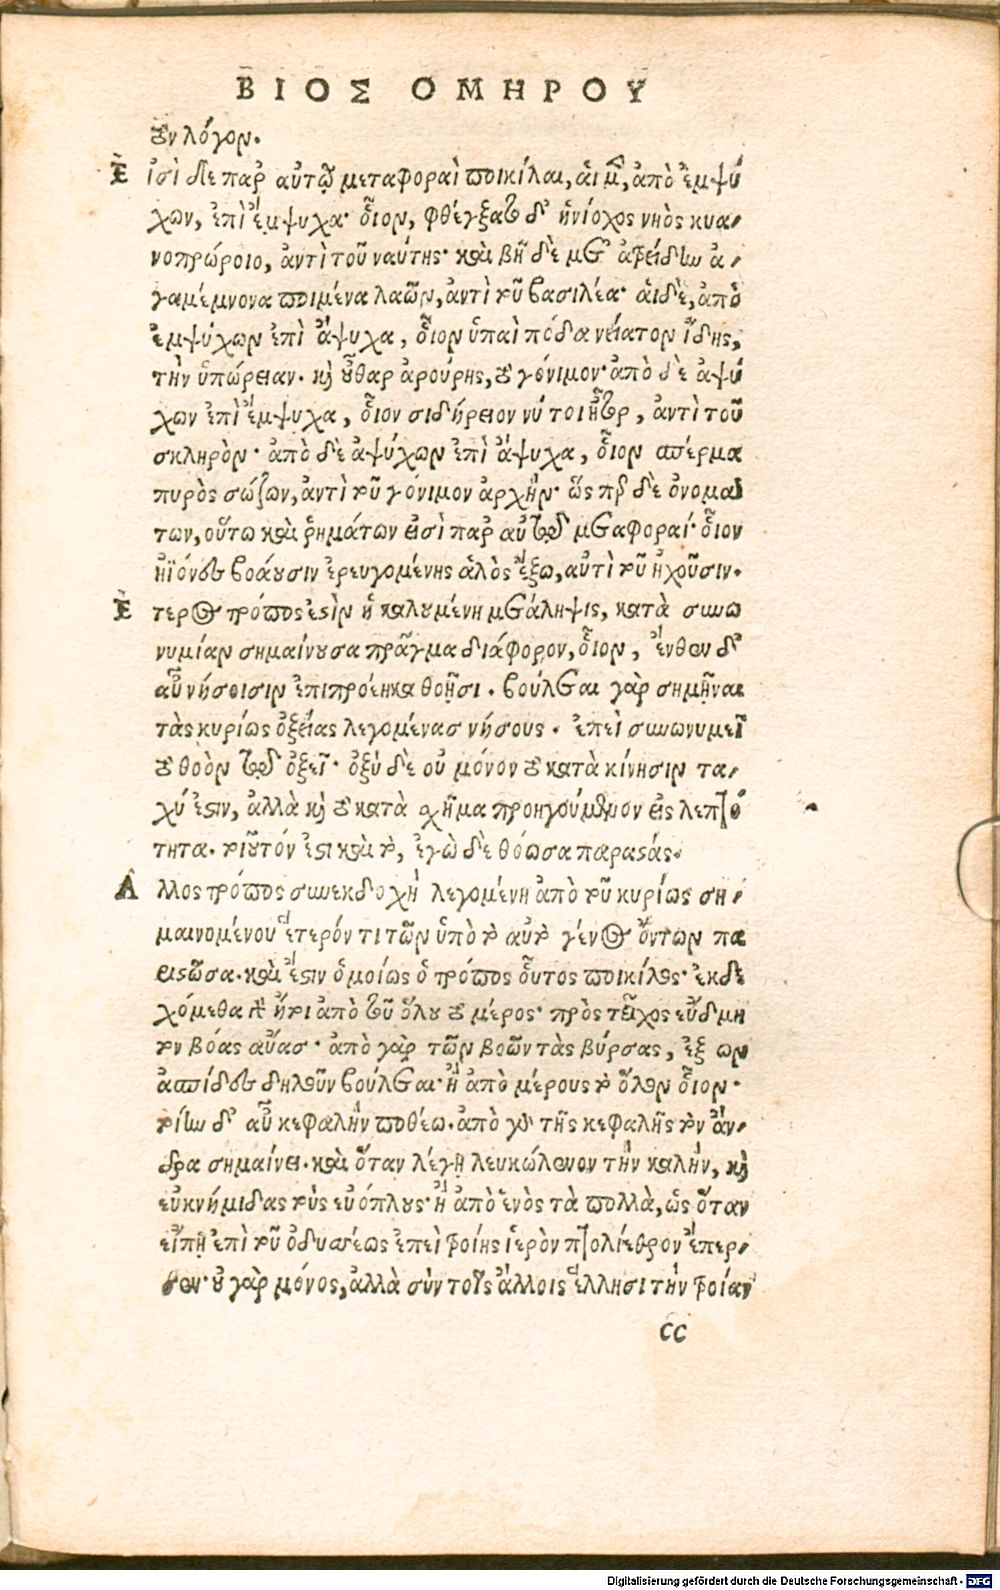 ΒΙΟΣ ΟΜΗΡΟΥ
τὸν λόγον.
Εἰσὶ δὲ παρ' αὐτῷ μεταφοραὶ ποικίλαι, αἱ μὲν, ἀπὸ ἐμψύ
χων, ἐπὶ ἔμψυχα· οἷον, φθέγξατο δ' ἡνίοχος νηὸς κυα-
νοπρώροιο, ἀντὶ τοῦ ναύτης· καὶ βῆ δὲ μετ' ἀτρείδην ἀ-
γαμέμνονα ποιμένα λαῶν, ἀντὶ τοῦ βασιλέα· αἱ δὲ, ἀπὸ
ἐμψύχων ἐπὶ ἄψυχα, οἷον ὑπαὶ πόδα νείατον ἴδης,
τὴν ὑπώρειαν. καὶ οὖθαρ ἀρούρης, τὸ γόνιμον· ἀπὸ δὲ ἀψύ
χων ἐπὶ ἔμψυχα, οἷον σιδήρειον νύ τοι ἦτορ, ἀντὶ τοῦ
σκληρὸν· ἀπὸ δὲ ἀψύχων ἐπὶ ἄψυχα, οἷον σπέρμα
πυρὸς σώζων, ἀντὶ τοῦ γόνιμον ἀρχὴν· ὥς περ δὲ ὀνομά
των, οὕτω καὶ ῥημάτων εἰσὶ παρ' αὐτῷ μεταφοραί· οἷον
ἠϊόνες βοάουσιν ἐρευγομένης ἁλὸς ἔξω, αὐτὶ τοῦ ἠχοῦσιν.
Ἕτερος τρόπος ἐστὶν ἡ καλουμένη μετάληψις, κατὰ συνω
νυμίαν σημαίνουσα πρᾶγμα διάφορον, οἷον, ἔνθεν δ'
αὖ νήσοισιν ἐπιπροέηκα θοῇσι. βούλεται γὰρ σημῆναι
τὰς κυρίως ὀξείας λεγομένασ νήσους. ἐπεὶ συνωνυμεῖ
τὸ θοὸν τῷ ὀξεῖ· ὀξὺ δὲ οὐ μόνον τὸ κατὰ κίνησιν τα-
χύ ἐστιν, ἀλλὰ καὶ τὸ κατὰ σχῆμα προηγούμενον εἰς λεπτό
τητα. τοιοῦτόν ἐστι καὶ τὸ, ἐγὼ δὲ θόωσα παραστάς.
Ἄλλος τρόπος συνεκδοχὴ λεγομένη ἀπὸ τοῦ κυρίως ση-
μαινομένου ἕτερόν τι τῶν ὑπὸ τὸ αὐτὸ γένος ὄντων πα
ειστῶσα. καὶ ἔστιν ὁμοίως ὁ τρόπος οὗτος ποικίλος· ἐκδε
χόμεθα γὰρ ἤτοι ἀπὸ τοῦ ὅλου τὸ μέρος· πρὸς τεῖχος εὔδμη
τον βόας αὔασ· ἀπὸ γὰρ τῶν βοῶν τὰς βύρσας, ἐξ ων
ἀσπίδες δηλοῦν βούλεται· ἢ ἀπὸ μέρους τὸ ὅλον οἷον·
τοίην δ' αὖ κεφαλὴν ποθέω. ἀπὸ γὰρ τῆς κεφαλῆς τὸν ἄν-
δρα σημαίνει. καὶ ὅταν λέγῃ λευκώλενον τὴν καλὴν, καὶ
εὐκνήμιδας τοὺς εὐόπλους· ἢ ἀπὸ ἑνὸς τὰ πολλὰ, ὡς ὅταν
εἴπῃ ἐπὶ τοῦ ὀδυσσέως ἐπεὶ τροίης ἱερὸν πτολίεθρον ἔπερ-
σεν· οὐ γὰρ μόνος, ἀλλὰ σὺν τοῖς ἄλλοις ἕλλησι τὴν τροίαν
cc
Digitalisierung gefördert durch die Deutsche Forschungsgemeinschaft - DFG